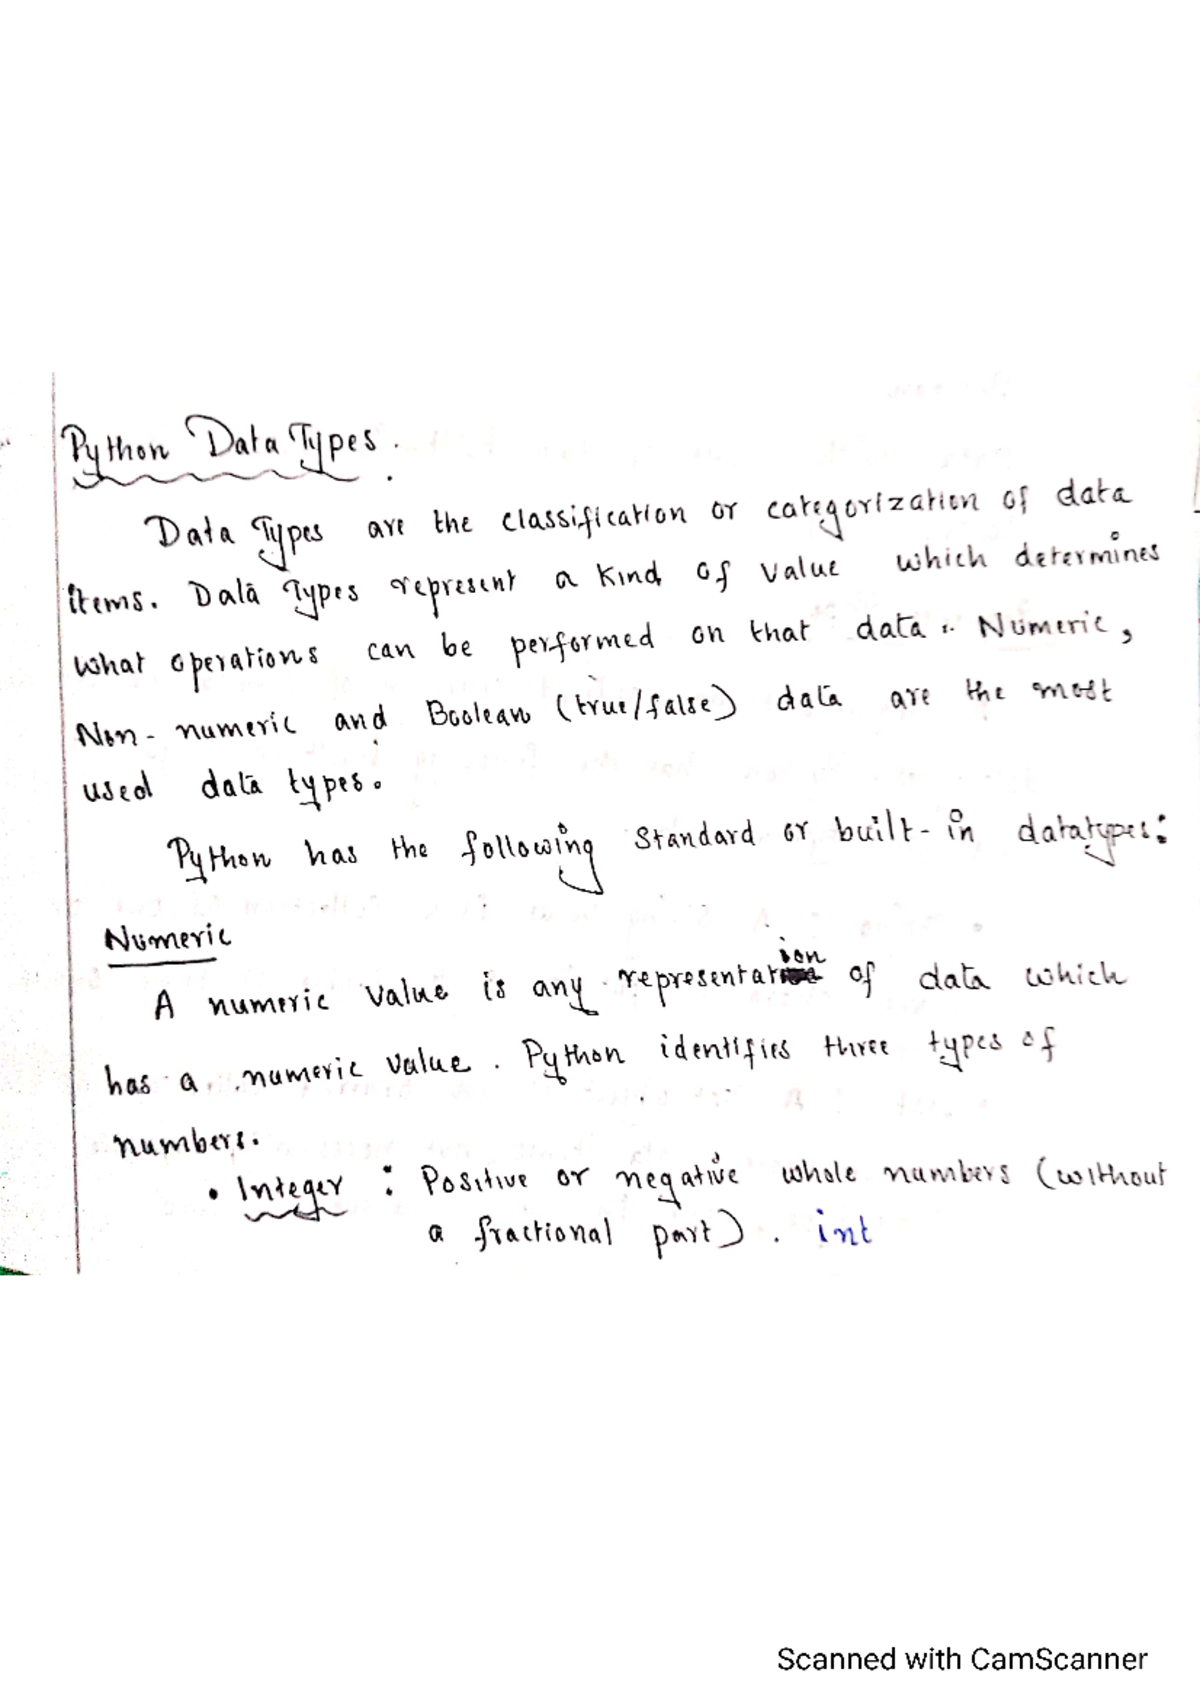 Python Data Types.
Data Types are the classification or categorization of data
items. Data Types represent a kind of value which determines
what operations can be performed on that data. Numeric,
Non-numeric and Boolean (true/false) data are the most
used data types.
Python has the following Standard or built-in datatypes:
Numeric
A numeric value is any representation of data which
has a numeric value. Python identifies three types of
numbers.
• Integer : Positive or negative whole numbers (without
a fractional part). int
Scanned with CamScanner